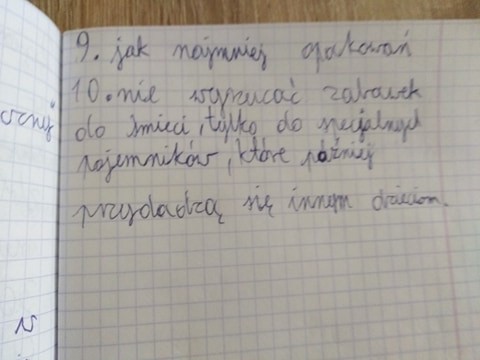 9. jak najmniej opakowań
10. nie wyrzucać zabawek
do śmieci, tylko do specjalnych
pojemników, które później
przydadzą się innym dzieciom.